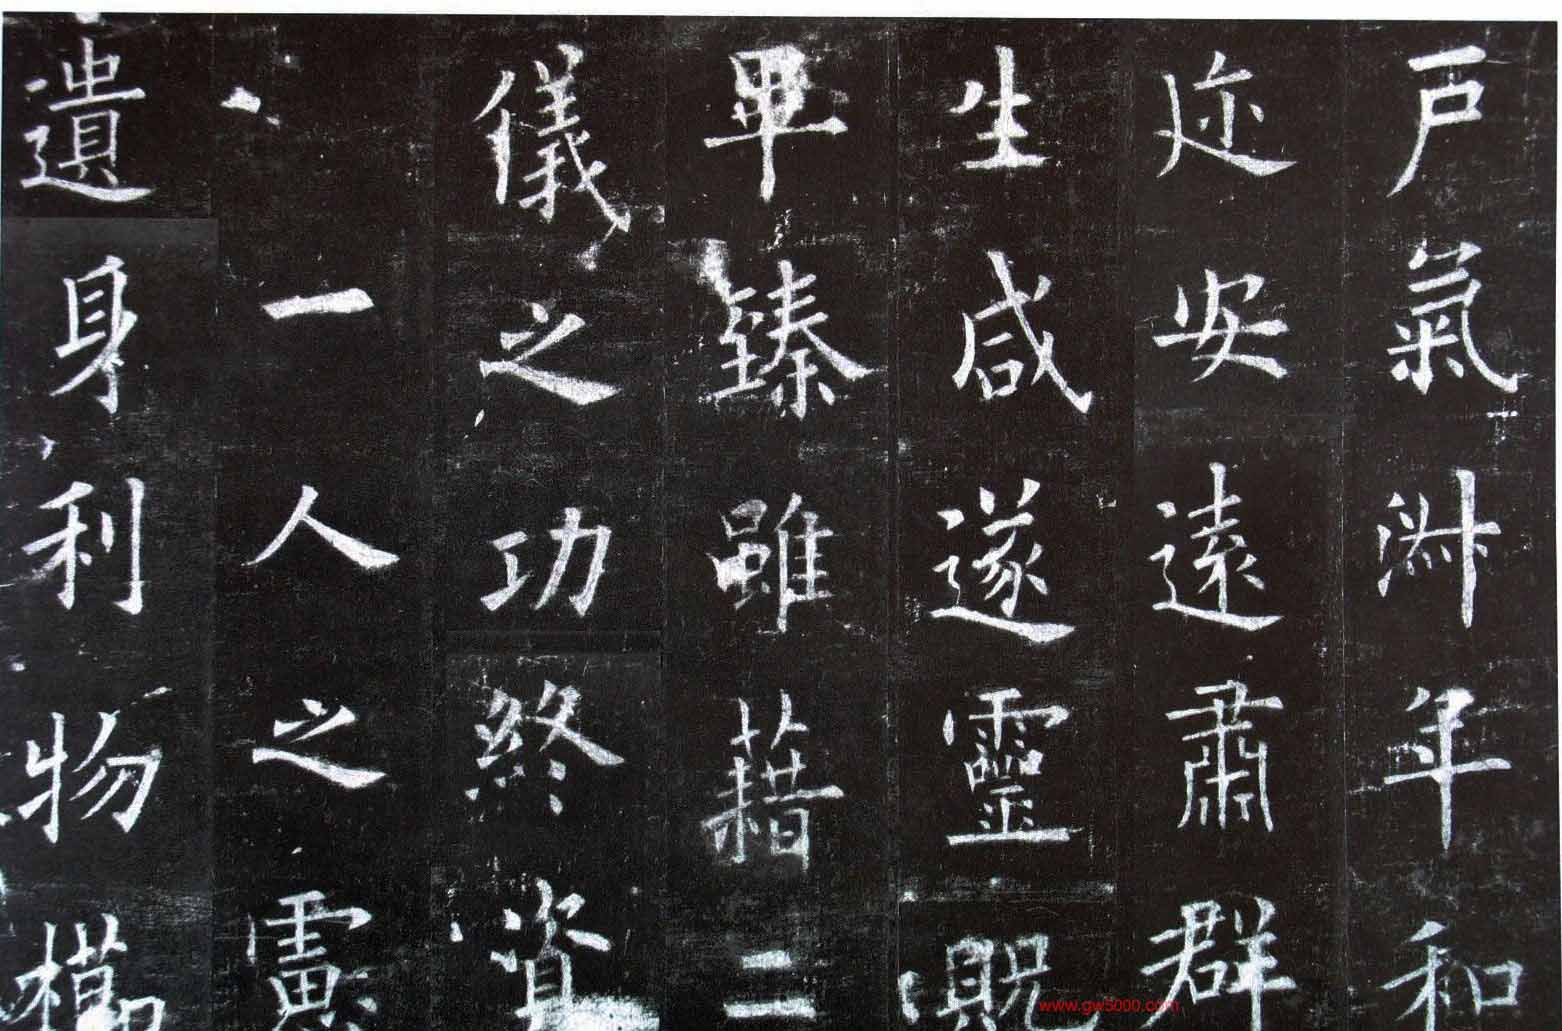 戶氣淑年和
迩安遠肅群
生咸遂靈貺
畢臻雖藉二
儀之功終資
一人之慮
遺身利物櫛
www.gw5000.com